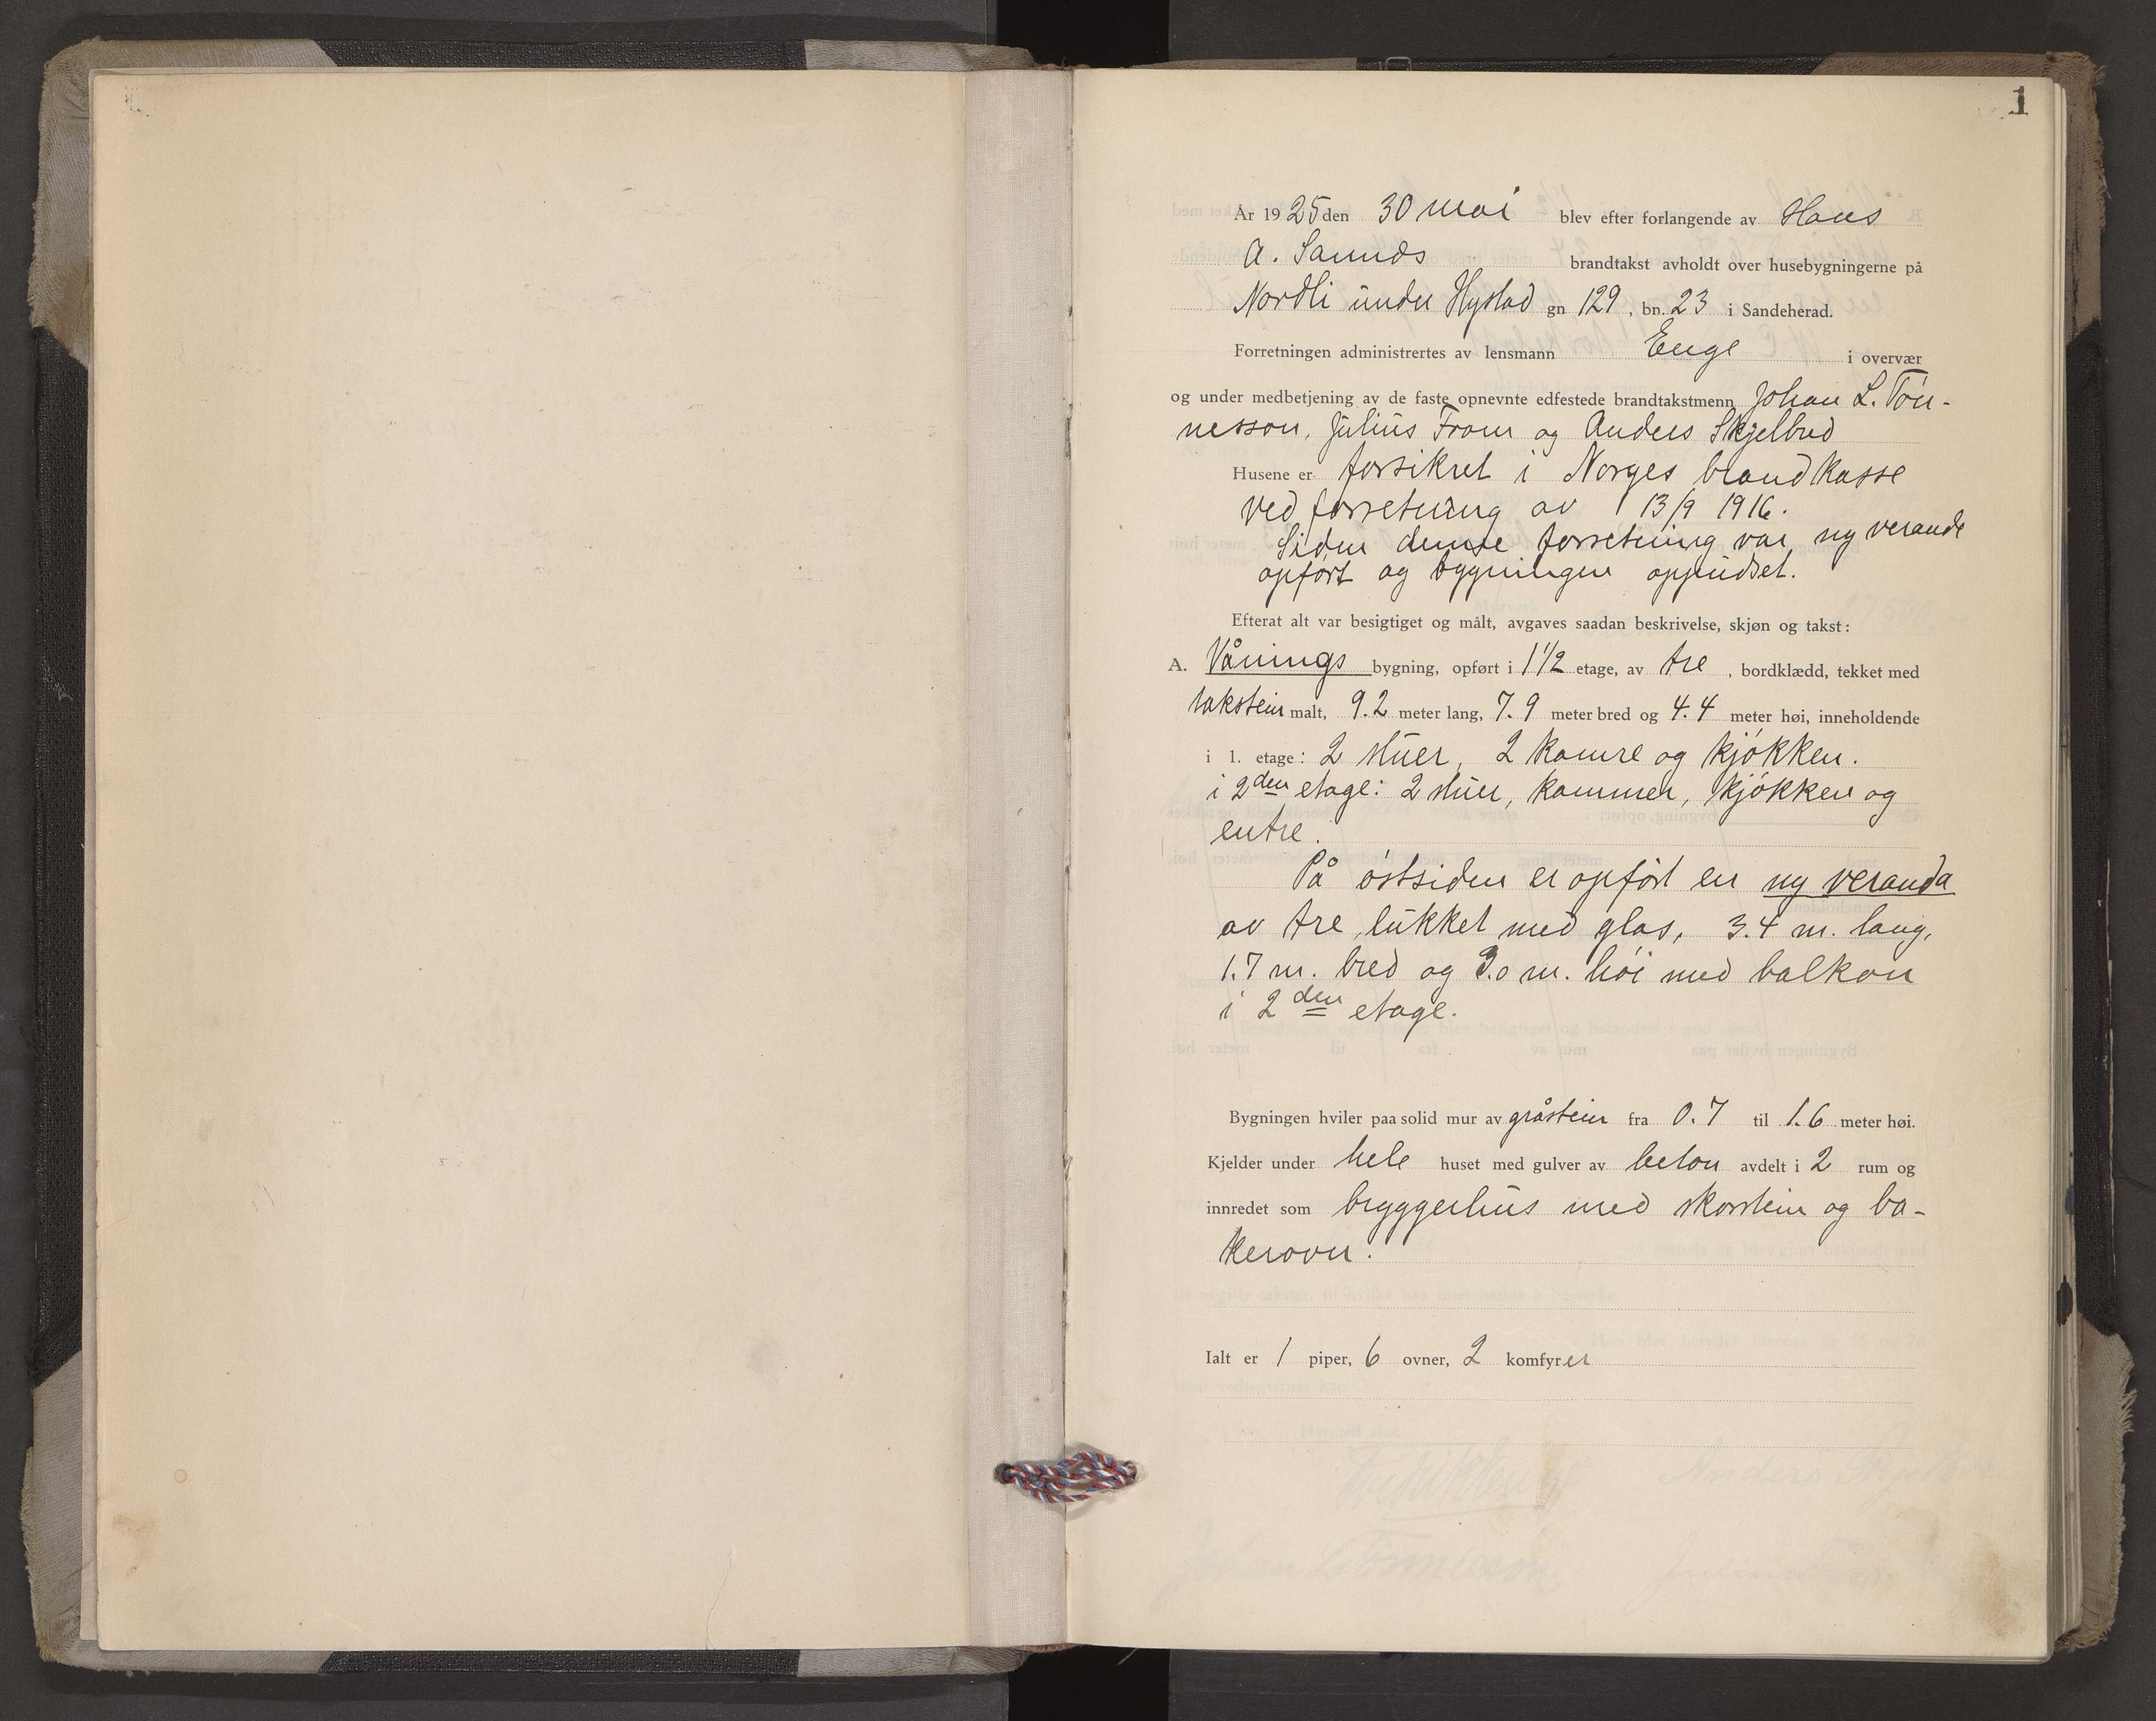 1
År 1925 den 30 mai blev efter forlangende av Hans
A. Sannds brandtakst avholdt over husebygningerne på
Nordli under Hystad gn 129, bn. 23 i Sandeherad.
Forretningen administrertes av lensmann Enge i overvær
og under medbetjening av de faste opnevnte edfestede brandtakstmenn Johan L. Tøn-
nesson, Julius Fram og Anders Skjelbred
Husene er forsikret i Norges brandkasse
ved forretning av 13/9 1916.
Siden denne forretning var ny verande
opført og bygningen oppudset.
Efterat alt var besigtiget og målt, avgaves saadan beskrivelse, skjøn og takst:
A. Vånings bygning, opført i 1 1/2 etage, av tre, bordklædd, tekket med
takstein malt, 9.2 meter lang, 7.9 meter bred og 4.4 meter høi, inneholdende
i 1. etage: 2 stuer, 2 kamre og kjøkken.
i 2den etage: 2 stuer, kammer, kjøkken og
entre.
På østsiden er opført en ny veranda
av tre, lukket med glas, 3.4 m. lang,
1.7 m. bred og 3.0 m. høi med balkon
i 2den etage.
Bygningen hviler paa solid mur av gråstein fra 0.7 til 1.6 meter høi.
Kjelder under hele huset med gulver av beton avdelt i 2 rum og
innredet som bryggerhus med skorstein og ba-
kerovn.
Ialt er 1 piper, 6 ovner, 2 komfyrer